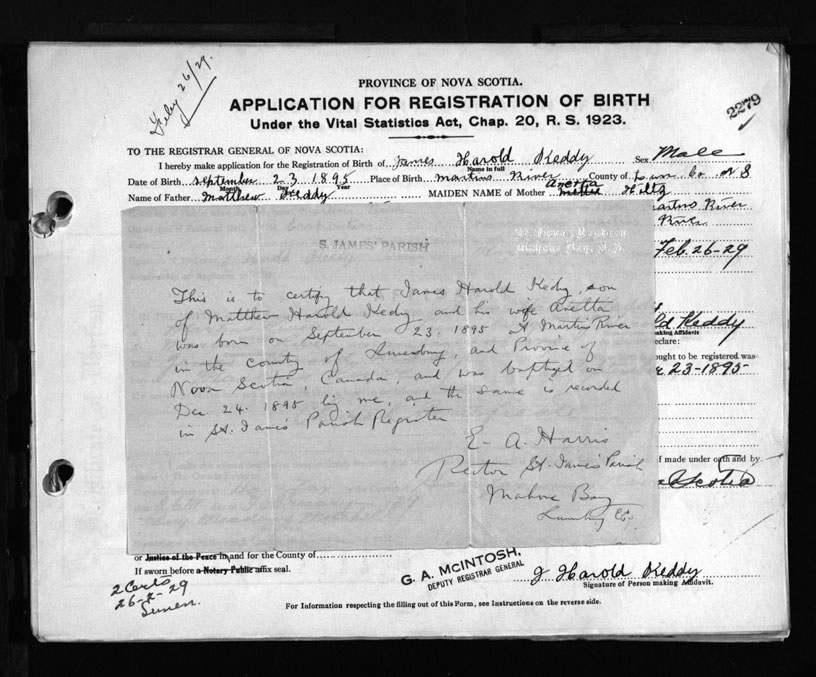 Feby 26/29.
PROVINCE OF NOVA SCOTIA.
2279
APPLICATION FOR REGISTRATION OF BIRTH
Under the Vital Statistics Act, Chap. 20, R. S. 1923.
TO THE REGISTRAR GENERAL OF NOVA SCOTIA:
I hereby make application for the Registration of Birth of James Harold Keddy Sex Male
Name in full
Date of Birth September 23 1895 Place of Birth Martins River County of Lun Co N S
Month Day Year
Name of Father Matthew Keddy MAIDEN NAME of Mother Anetta Hiltz
Martins River
River
S. JAMES' PARISH
Feb. 26-29
This is to certify that James Harold Kedy, son
of Matthew Harold Kedy and his wife Anetta
was born on September 23. 1895 at Martins River
in the county of Lunenburg, and Province of
Nova Scotia, Canada, and was baptized on
Dec. 24. 1895 by me, and the same is recorded
in St. James' Parish Register
E. A. Harris
Rector St. James' Parish
Mahone Bay
Keddy
making Affidavit
eclare:
ought to be registered was
23-1895-
f made under oath and by
Scotia
or Justice of the Peace in and for the County of
If sworn before a Notary Public affix seal.
G. A. McINTOSH,
DEPUTY REGISTRAR GENERAL
J Harold Keddy
Signature of Person making Affidavit.
2 Certs
26-2-29
For Information respecting the filling out of this Form, see Instructions on the reverse side.